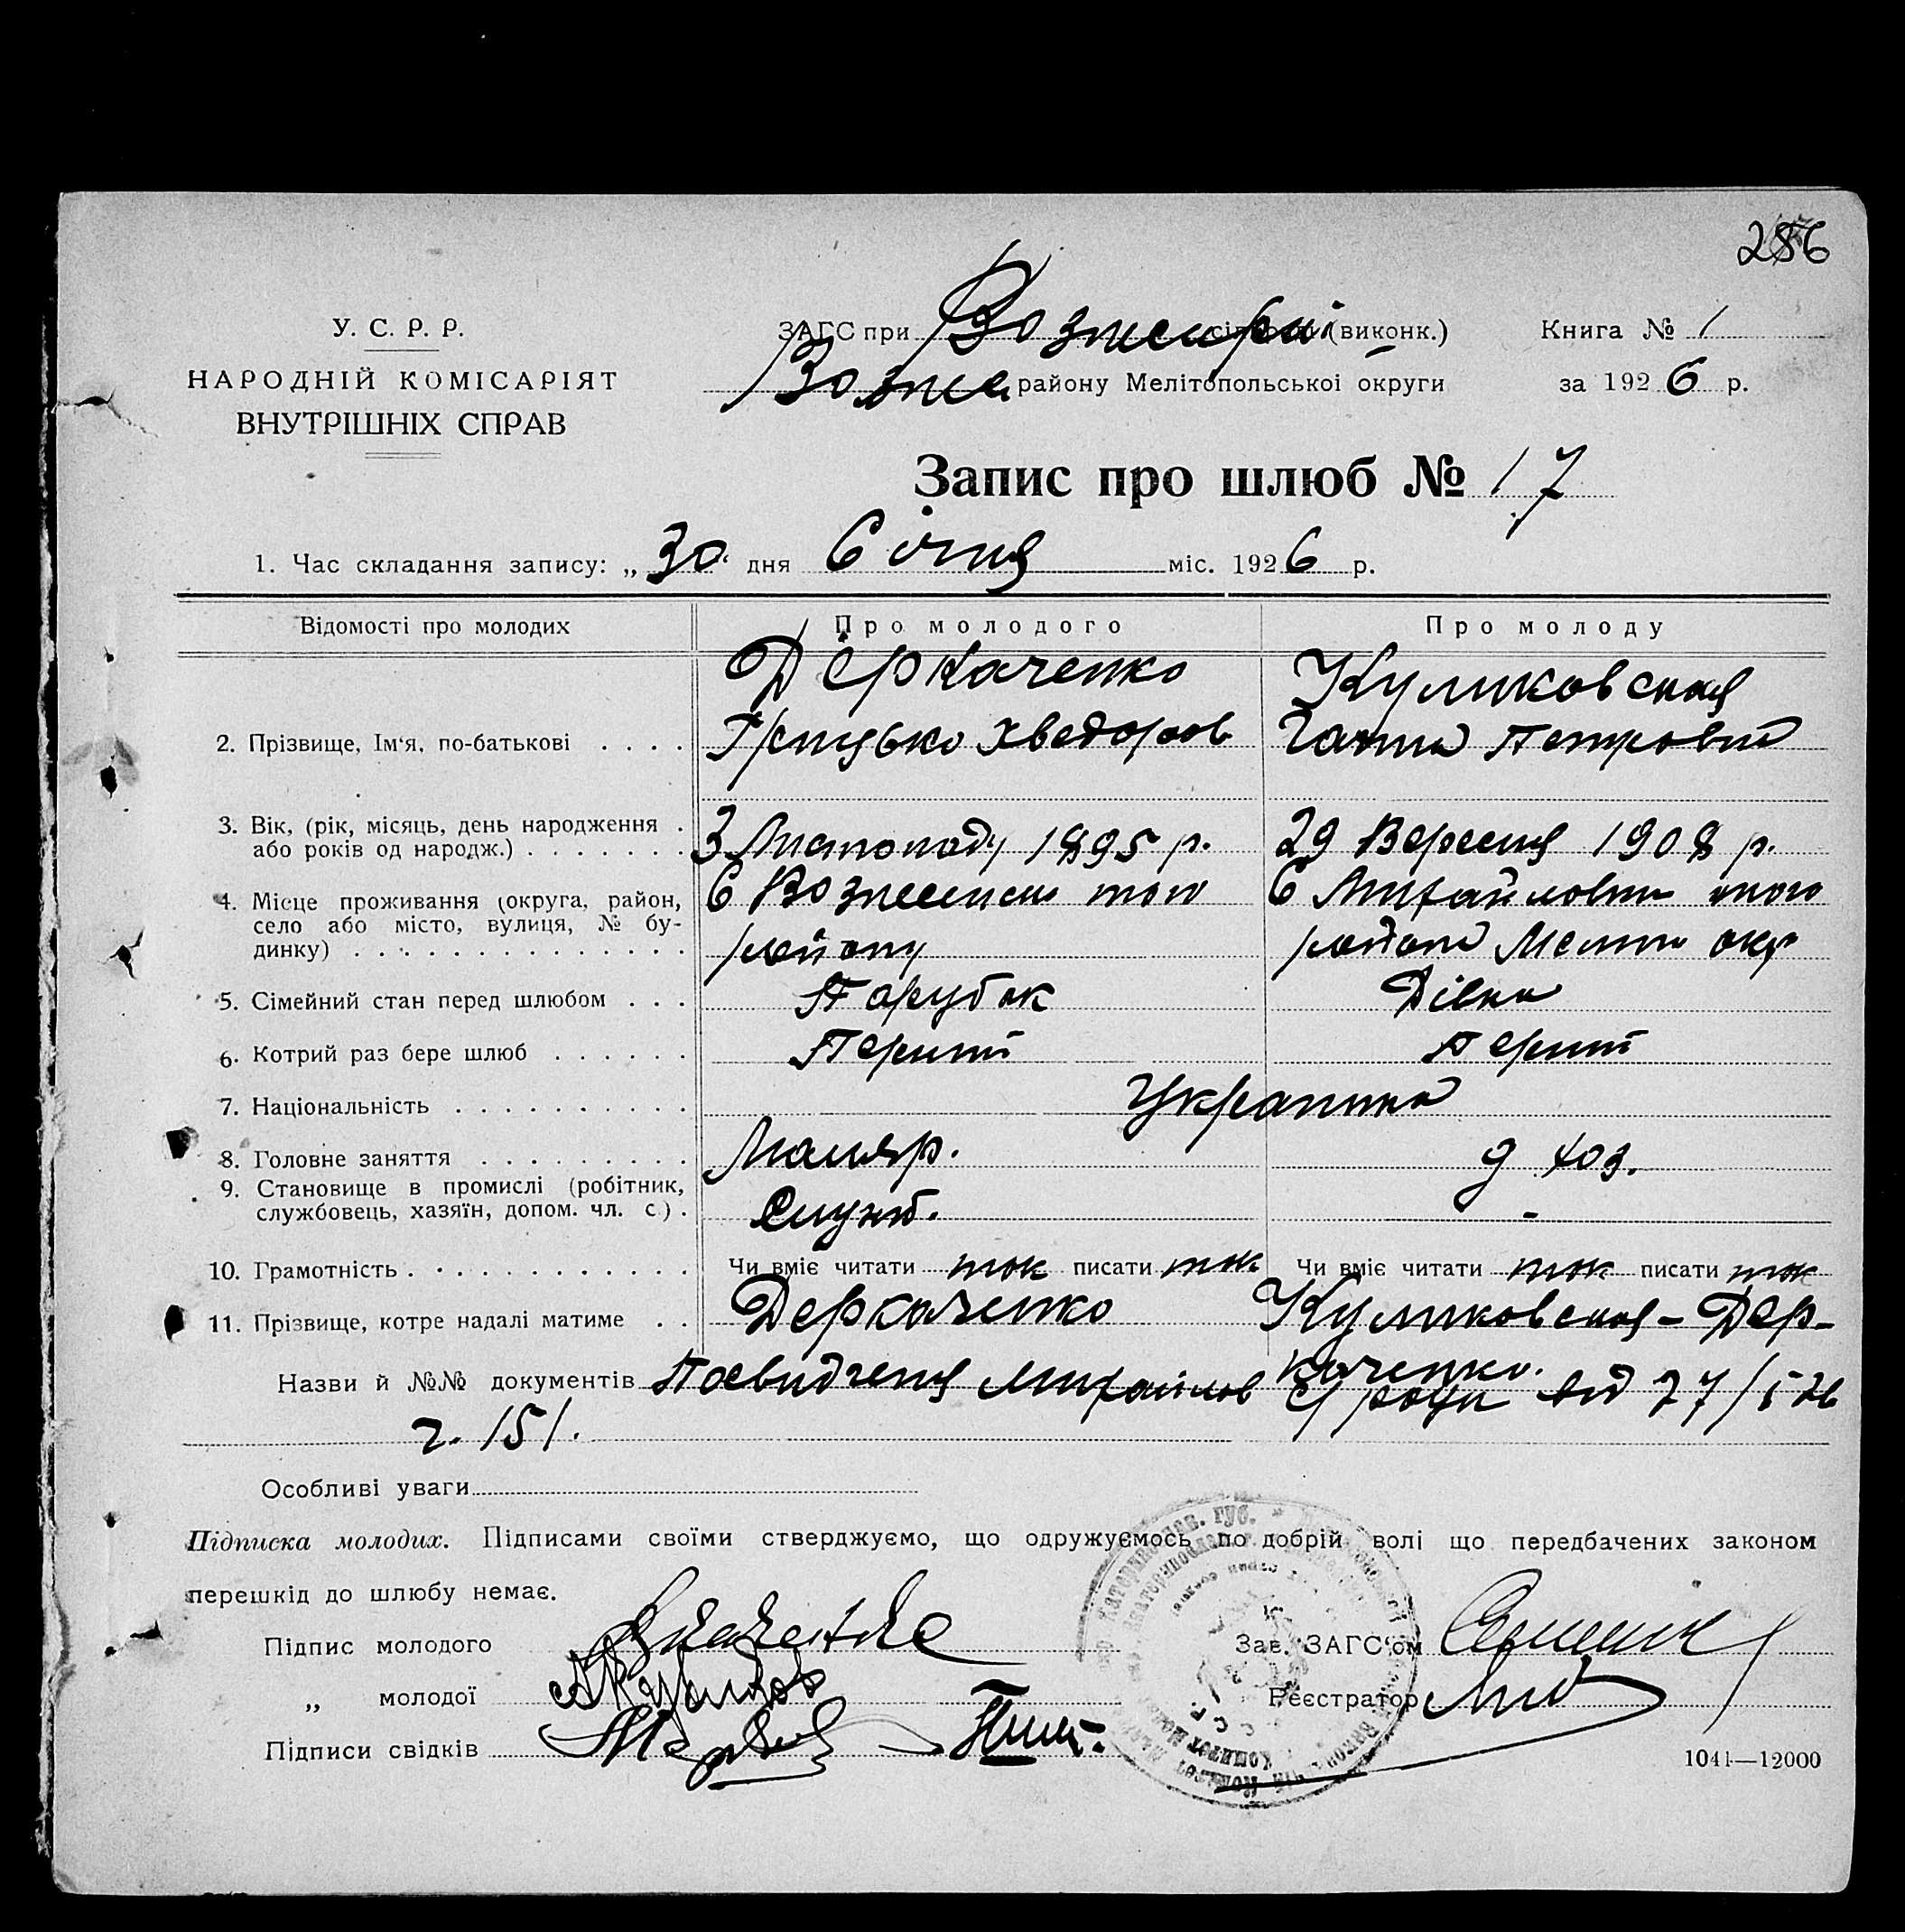 286
У. С. Р. Р.
НАРОДНІЙ КОМІСАРІЯТ
ВНУТРІШНІХ СПРАВ
ЗАГС при (виконк.)
Возне району Мелітопольської округи
Книга № 1
за 1926 р.
Запис про шлюб № 17
1. Час складання запису: „30“ дня Січня міс. 1926 р.
Відомості про молодих Про молодого Про молоду
2. Прізвище, Ім‘я, по-батькові . . . .
Деркаченко
Грицько Хведоров
Куликовская
Ганна Петровна
3. Вік, (рік, місяць, день народження .
або років од народж.) . . . . . . .
3 Листопаду 1895 р.
29 Вересня 1908 р.
4. Місце проживання (округа, район,
село або місто, вулиця, № бу-
динку) . . . . . . . . . . . . . .
С Вознесенки того
району
С Михайловки того
района Мелит окр
5. Сімейний стан перед шлюбом . . . Парубок Дівка
6. Котрий раз бере шлюб . . . . . . Перший Перший
7. Національність . . . . . . . . . . Украинка
8. Головне заняття . . . . . . . . . Маляр. д хоз.
9. Становище в промислі (робітник,
службовець, хазяїн, допом. чл. с) . Служб. -
10. Грамотність . . . . . . . . . . . . Чи вміє читати так писати так Чи вміє читати так писати так
11. Прізвище, котре надалі матиме . . Деркаченко Куликовская-Дер-
каченко.
Назви й №№ документів Посвидченя Михайлов с/ради від 27/I 26
ч. 151.
Особливі уваги
Підписка молодих. Підписами своїми стверджуємо, що одружуємось по добрій волі що передбачених законом
перешкід до шлюбу немає.
Підпис молодого
„ молодої
Підписи свідків
Зав. ЗАГС‘ом
Реєстратор
1041—12000